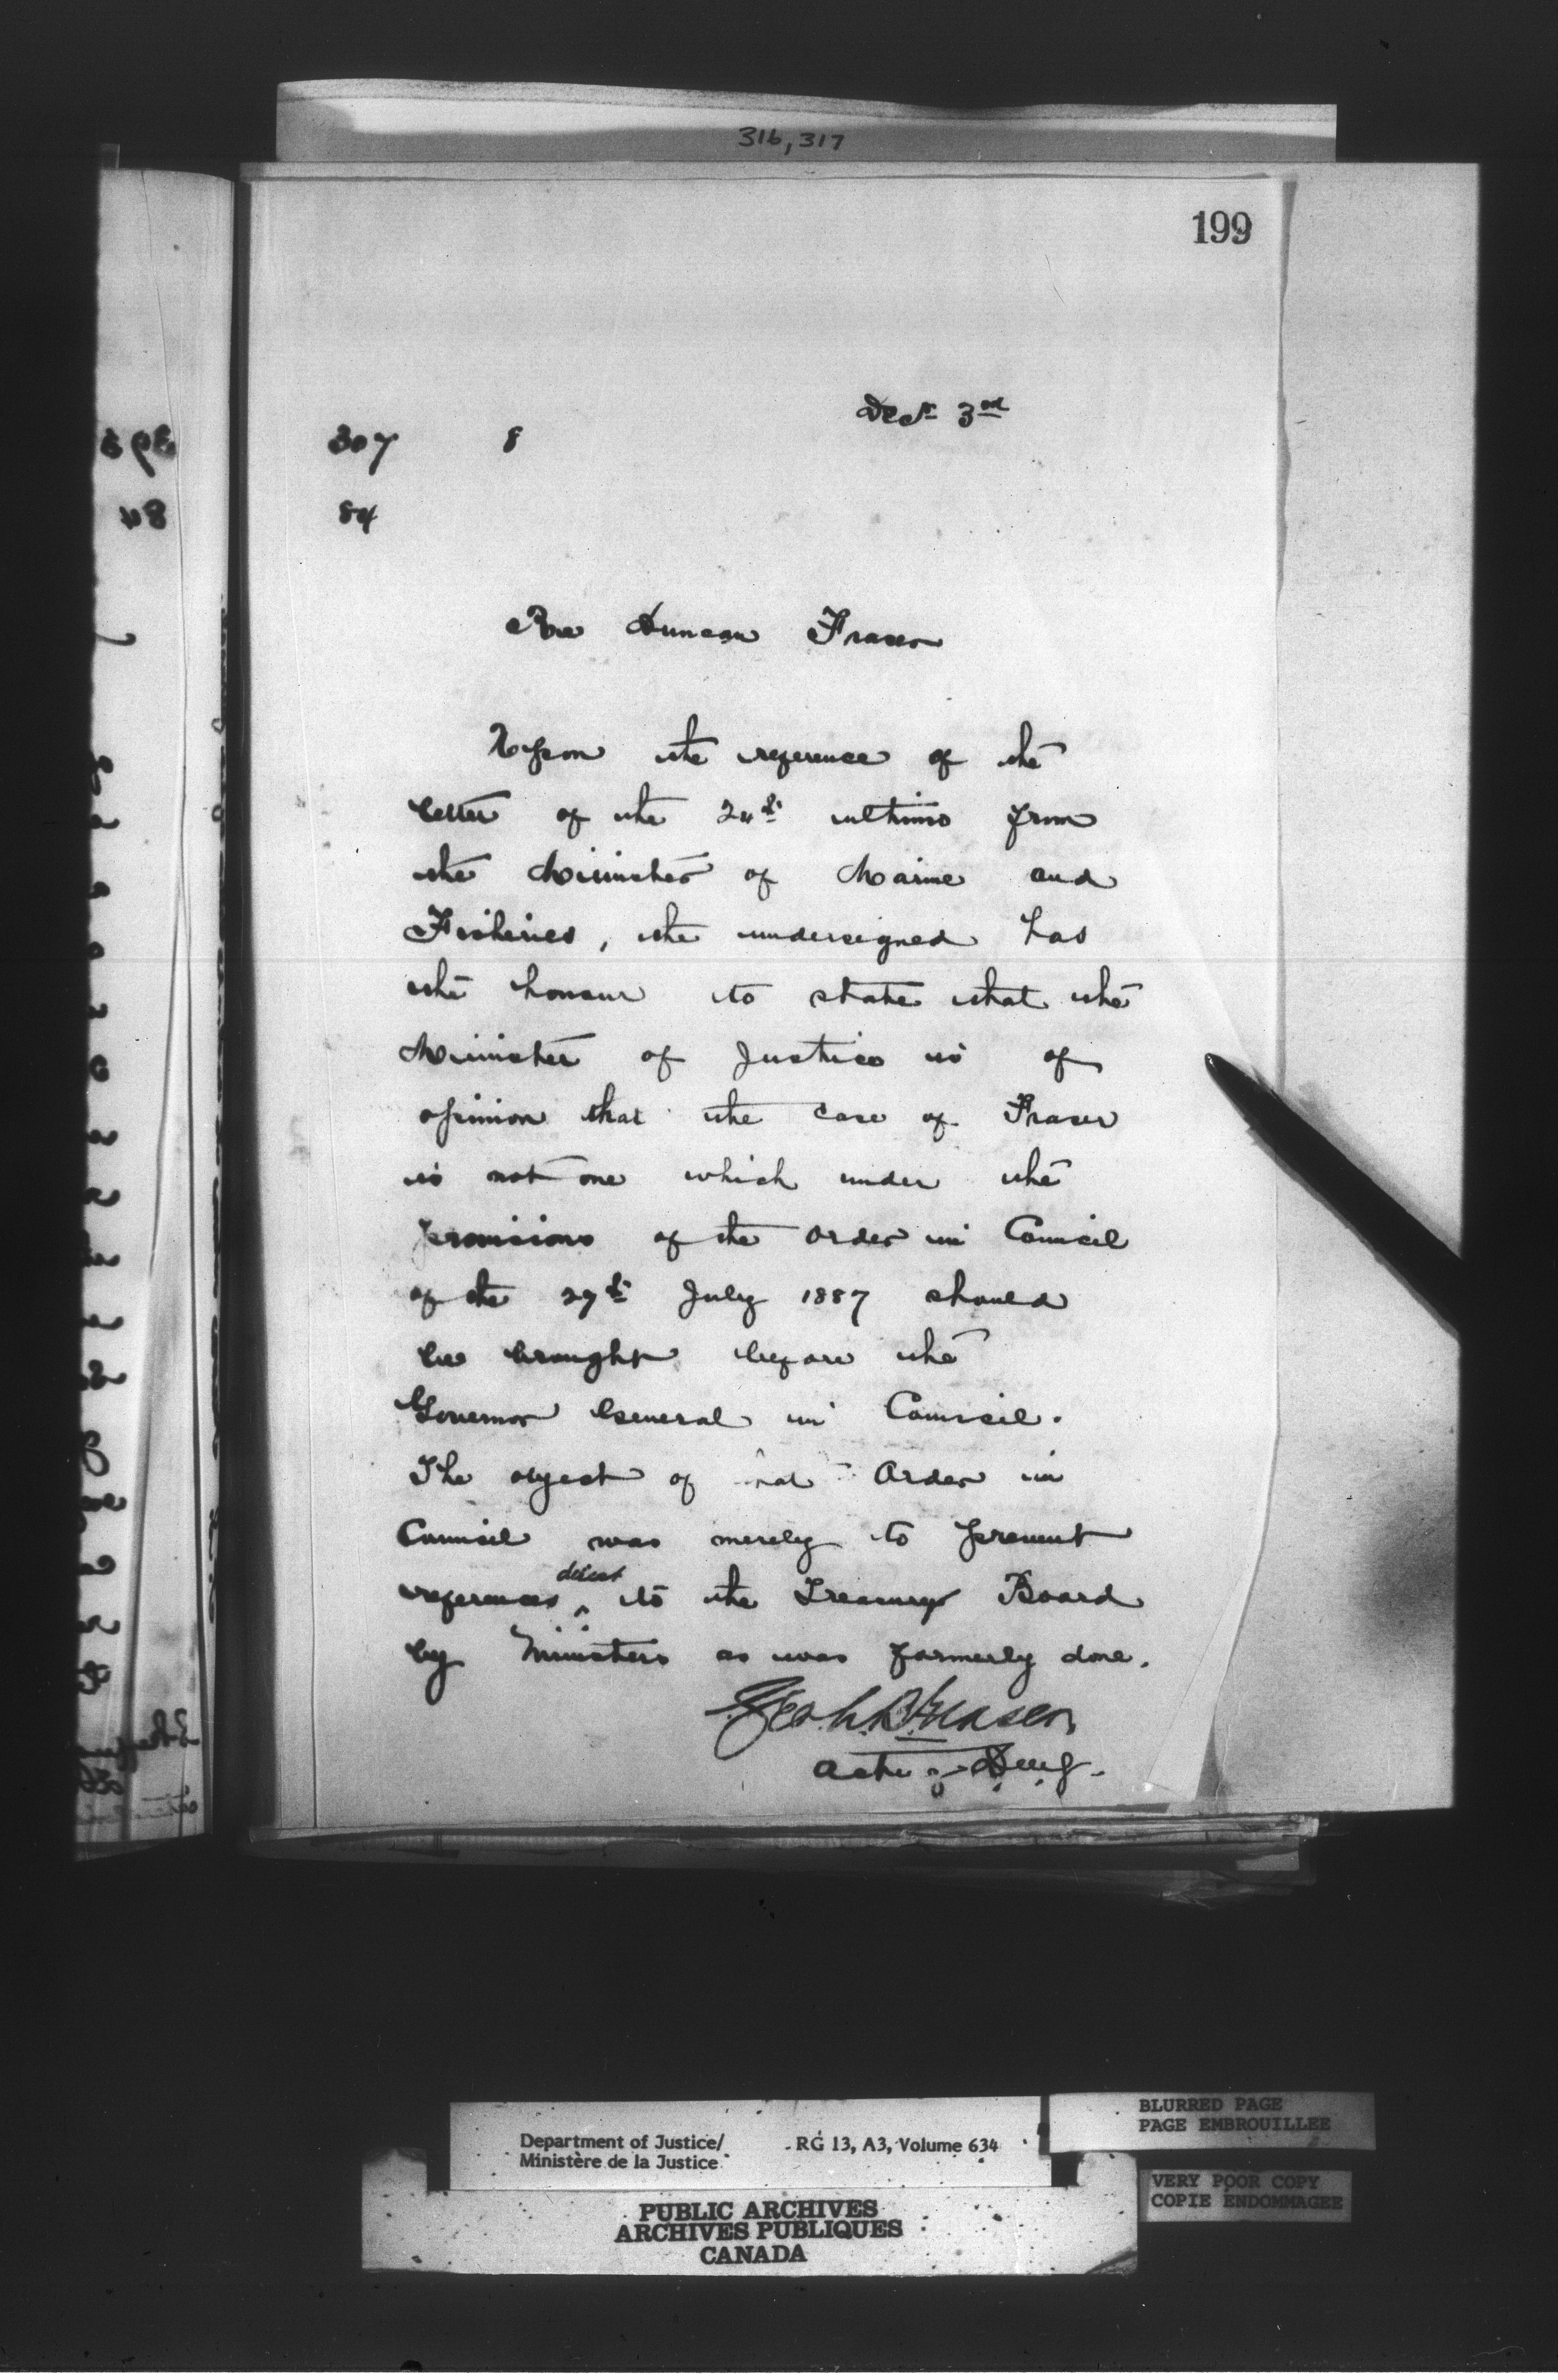 316, 317
199
Decr 3rd
307 8
84
Re Duncan Fraser
Upon the reference of the
letter of the 24th ultimo from
the Minister of Marine and
Fisheries, the undersigned has
the honour to state that the
Minister of Justice is of
opinion that the case of Fraser
is not one which under the
provisions of the Order in Council
of the 27th July 1887 should
be brought before the
Governor General in Council.
The object of that Order in
Council was merely to prevent
references direct to the Treasury Board
by Ministers as was formerly done.
Acting D.M.J.
Department of Justice/
Ministère de la Justice
RG 13, A3, Volume 634
BLURRED PAGE
PAGE EMBROUILLEE
VERY POOR COPY
COPIE ENDOMMAGEE
PUBLIC ARCHIVES
ARCHIVES PUBLIQUES
CANADA